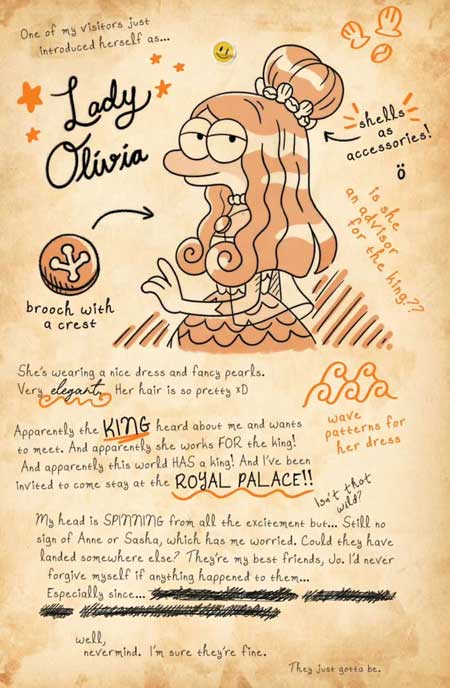 One of my visitors just
introduced herself as...
Lady
Olivia
shells
as
accessories!
ö
is she
an advisor
for the king??
brooch with
a crest
She's wearing a nice dress and fancy pearls.
Very elegant. Her hair is so pretty xD
wave
patterns for
her dress
Apparently the KING heard about me and wants
to meet. And apparently she works FOR the king!
And apparently this world HAS a king! And I've been
invited to come stay at the ROYAL PALACE!!
Isn't that
wild?
My head is SPINNING from all the excitement but... Still no
sign of Anne or Sasha, which has me worried. Could they have
landed somewhere else? They're my best friends, Jo. I'd never
forgive myself if anything happened to them...
Especially since...
well,
nevermind. I'm sure they're fine.
They just gotta be.